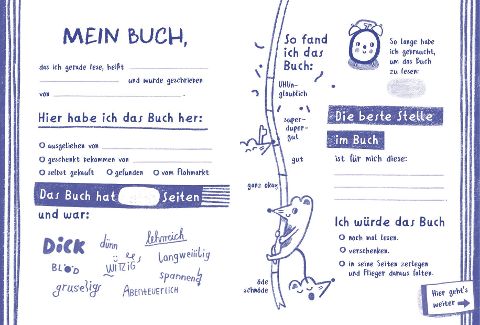 MEIN BUCH,
das ich gerade lese, heißt
und wurde geschrieben
von
Hier habe ich das Buch her:
ausgeliehen von
geschenkt bekommen von
selbst gekauft gefunden vom Flohmarkt
Das Buch hat Seiten
und war:
DICK dünn lehrreich
BLÖD WITZIG langweilig
gruselig ABENTEUERLICH spannend
So fand
ich das
Buch:
UHUn-
glaublich
super-
duper-
gut
gut
ganz okay
öde
schnöde
So lange habe
ich gebraucht,
um das Buch
zu lesen:
Die beste Stelle
im Buch
ist für mich diese:
Ich würde das Buch
noch mal lesen.
verschenken.
in seine Seiten zerlegen
und Flieger daraus falten.
Hier geht's
weiter